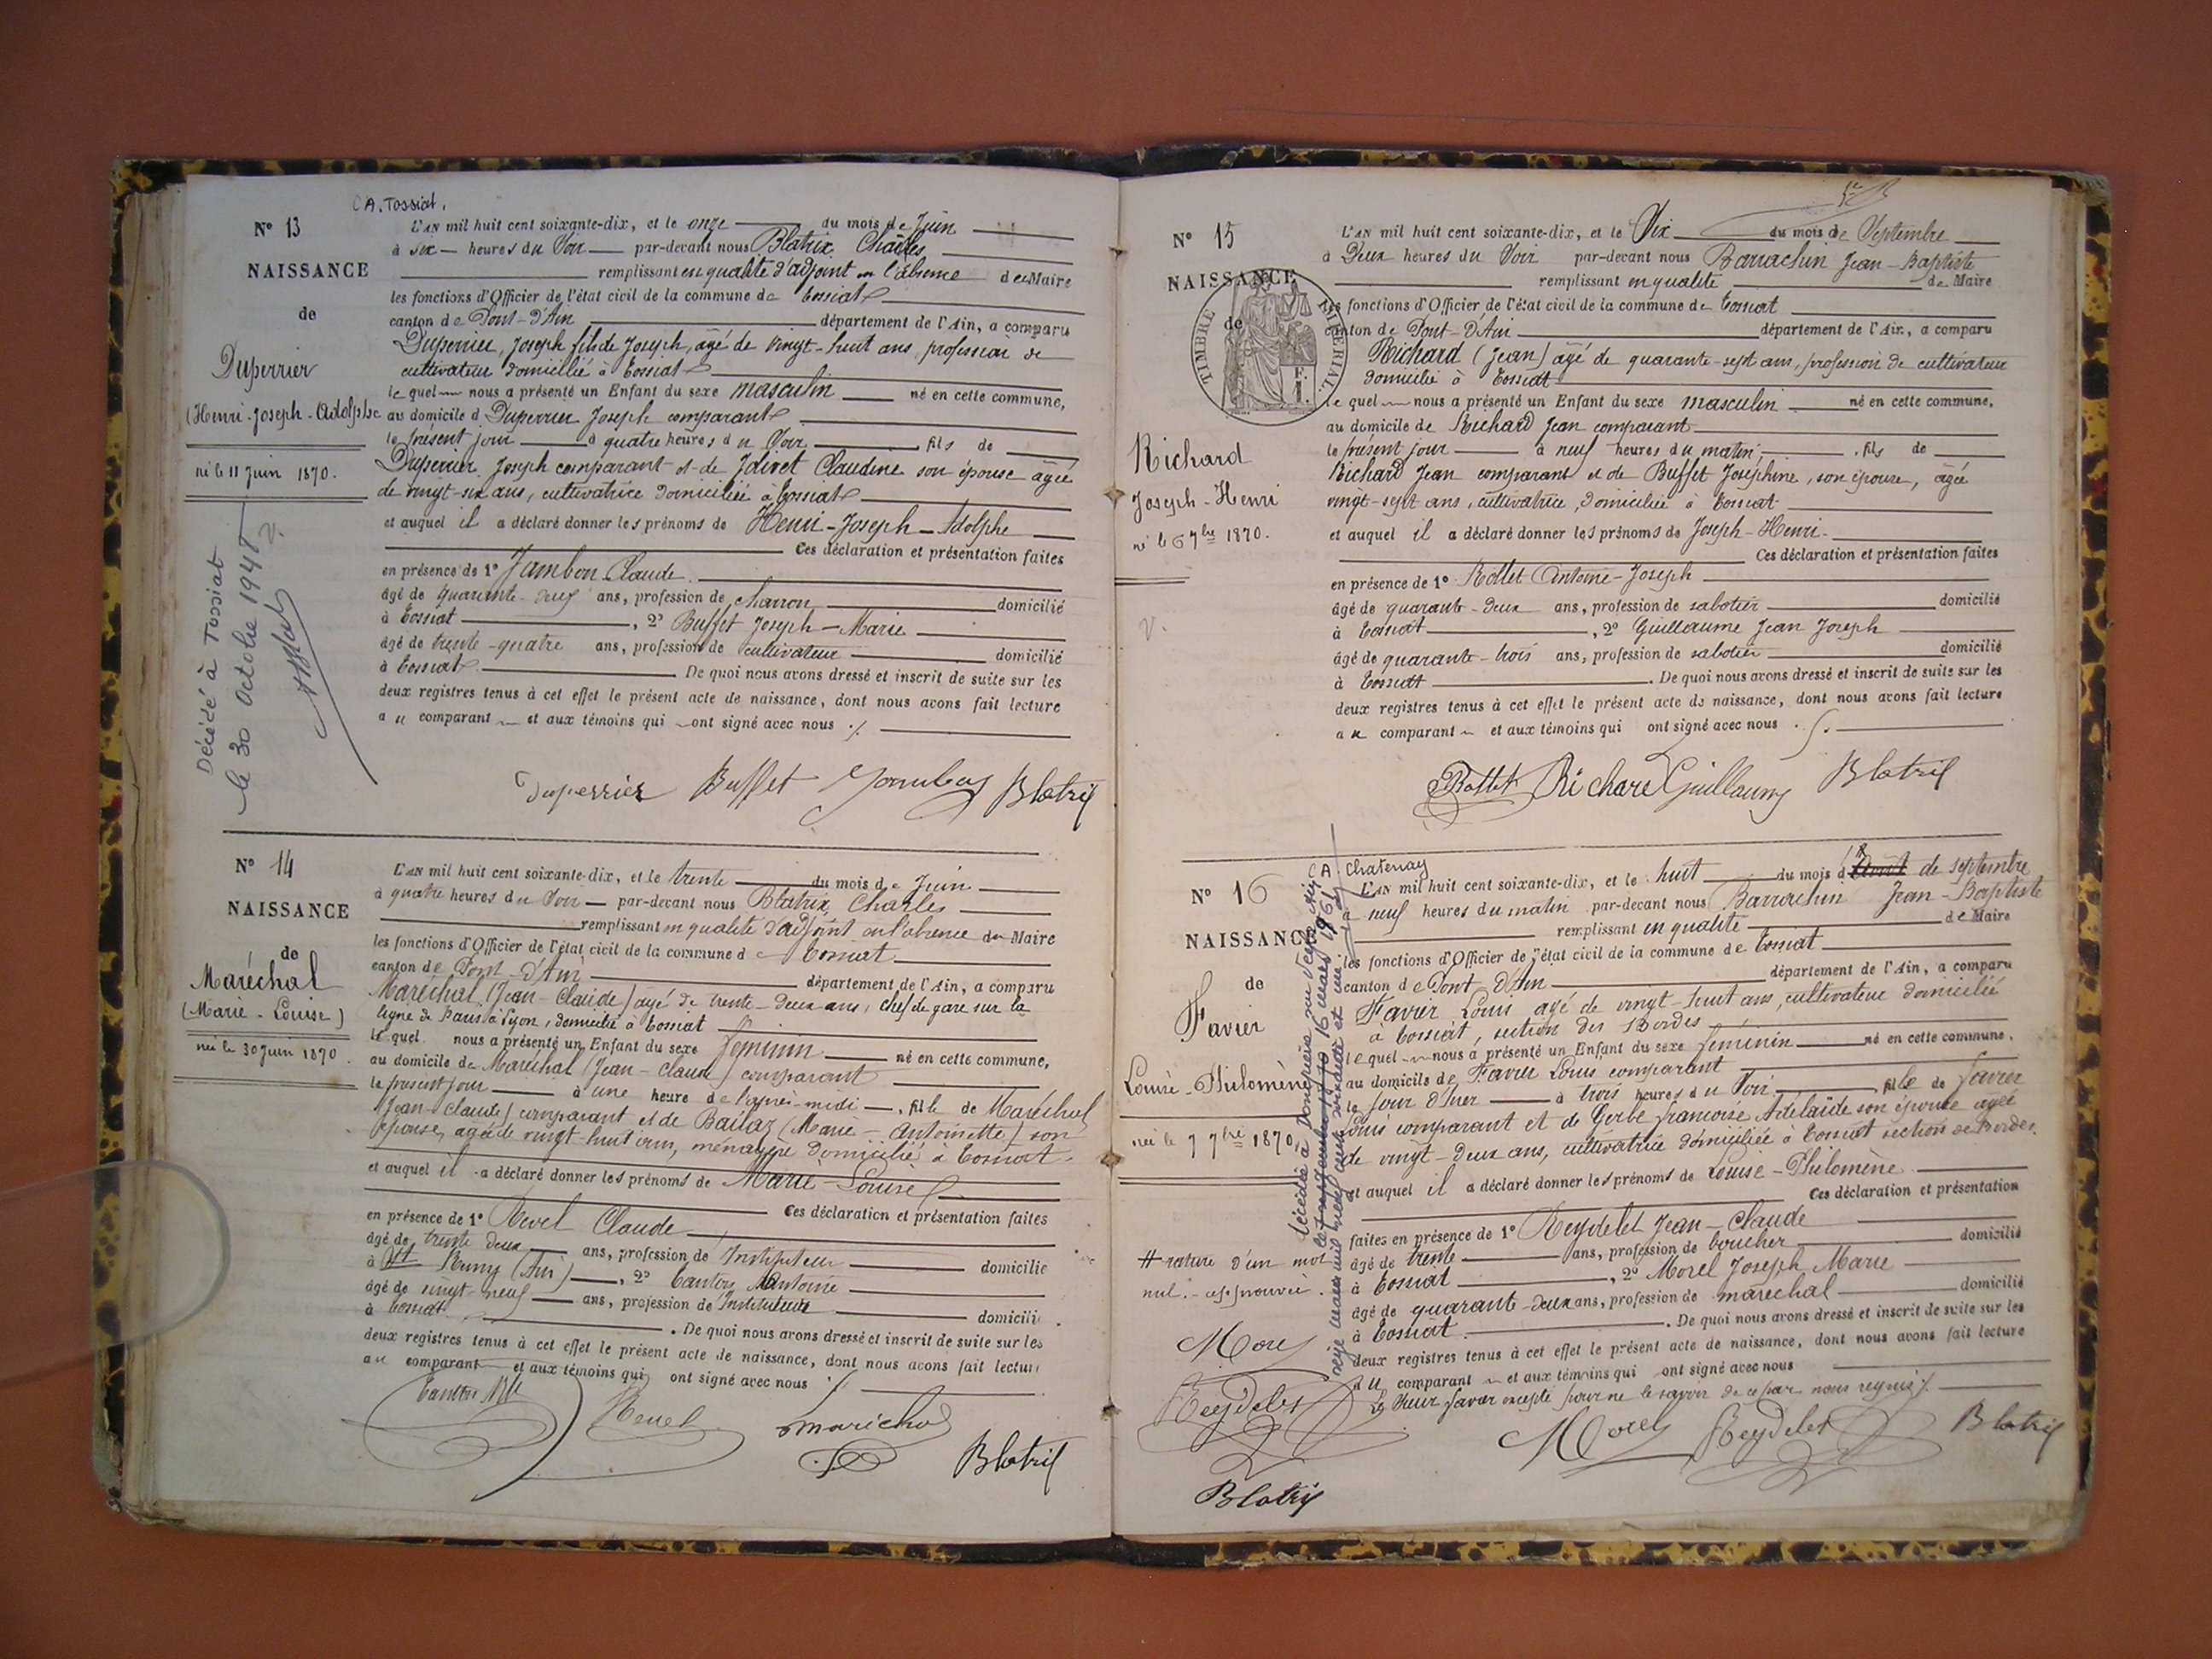 CA. Tossiat.
N° 13
NAISSANCE
de
Duperrier
(Henri-Joseph-Adolphe
né le 11 Juin 1870.
Décédé à Tossiat
le 30 Octobre 194
L'AN mil huit cent soixante-dix, et le onze du mois de Juin
à six heures du Soir par-devant nous Blatrix Charles
remplissant en qualité d'adjoint en l'absence de Maire
les fonctions d'Officier de l'état civil de la commune de Tossiat
canton de Pont-d'Ain département de l'Ain, a comparu
Duperrier, Joseph fils de Joseph, âgé de vingt-huit ans, profession de
cultivateur domicilié à Tossiat
le quel nous a présenté un Enfant du sexe masculin né en cette commune,
au domicile d Duperrier Joseph comparant
le présent jour à quatre heures du Soir fils de
Duperrier Joseph comparant et de Claudine son épouse agée
de vingt-six ans, cultivatrice domiciliée à Tossiat
et auquel il a déclaré donner les prénoms de Henri-Joseph-Adolphe
Ces déclaration et présentation faites
en présence de 1° Jambon Claude
âgé de quarante-neuf ans, profession de charron domicilié
à Tossiat, 2° Buffet Joseph-Marie
âgé de trente-quatre ans, profession de cultivateur domicilié
à Tossiat De quoi nous avons dressé et inscrit de suite sur les
deux registres tenus à cet effet le présent acte de naissance, dont nous avons fait lecture
au comparant et aux témoins qui ont signé avec nous ./.
Duperrier Buffet Jambon Blatrix
N° 14
NAISSANCE
de
Maréchal
(Marie-Louise)
née le 30 Juin 1870.
L'AN mil huit cent soixante-dix, et le trente du mois de Juin
à quatre heures du Soir par-devant nous Blatrix Charles
remplissant en qualité d'adjoint en l'absence du Maire
les fonctions d'Officier de l'état civil de la commune de Tossiat
canton de Pont-d'Ain département de l'Ain, a comparu
Maréchal (Jean-Claude) agé de trente-deux ans, chef de gare sur la
ligne de Paris à Lyon, domicilié à Tossiat
le quel nous a présenté un Enfant du sexe féminin né en cette commune,
au domicile de Maréchal (Jean-Claude) comparant
le présent jour à une heure de l'après-midi, fille de Maréchal
(Jean-Claude) comparant et de Baillaz (Marie-Antoinette) son
épouse, agée de vingt-huit ans, ménagère domiciliée à Tossiat.
et auquel il a déclaré donner les prénoms de Marie-Louise
Ces déclaration et présentation faites
en présence de 1° Revel Claude
âgé de trente deux ans, profession de Instituteur domicilié
à St Remy (Ain), 2° Antoine
âgé de vingt-neuf ans, profession de Instituteur domicilié
à Tossiat. De quoi nous avons dressé et inscrit de suite sur les
deux registres tenus à cet effet le présent acte de naissance, dont nous avons fait lecture
au comparant et aux témoins qui ont signé avec nous ./.
Revel Maréchal
Blatrix
N° 15
NAISSANCE
de
TIMBRE IMPÉRIAL
Richard
Joseph-Henri
né le 6 7bre 1870.
L'AN mil huit cent soixante-dix, et le Dix du mois de Septembre
à Deux heures du Soir par-devant nous Barrachin Jean-Baptiste
remplissant en qualité de Maire
les fonctions d'Officier de l'état civil de la commune de Tossiat
canton de Pont-d'Ain département de l'Ain, a comparu
Richard (Jean) âgé de quarante-sept ans, profession de cultivateur
domicilié à Tossiat
le quel nous a présenté un Enfant du sexe masculin né en cette commune,
au domicile de Richard Jean comparant
le présent jour à neuf heures du matin, fils de
Richard Jean comparant et de Buffet Joséphine, son épouse, agée
vingt-sept ans, cultivatrice, domiciliée à Tossiat
et auquel il a déclaré donner les prénoms de Joseph-Henri
Ces déclaration et présentation faites
en présence de 1° Rollet Antoine-Joseph
âgé de quarante-deux ans, profession de sabotier domicilié
à Tossiat, 2° Guillaume Jean Joseph
âgé de quarante-trois ans, profession de sabotier domicilié
à Tossiat. De quoi nous avons dressé et inscrit de suite sur les
deux registres tenus à cet effet le présent acte de naissance, dont nous avons fait lecture
au comparant et aux témoins qui ont signé avec nous ./.
Rollet Richard Guillaume Blatrix
CA Chatenay
N° 16
NAISSANCE
de
Favier
Louise-Philomène
née le 7 7bre 1870
rature d'un mot
nul. approuvée.
Morel
Reydelet
Blatrix
L'AN mil huit cent soixante-dix, et le huit du mois d Août de septembre
à neuf heures du matin par-devant nous Barrachin Jean-Baptiste
remplissant en qualité de Maire
les fonctions d'Officier de l'état civil de la commune de Tossiat
canton de Pont d'Ain département de l'Ain, a comparu
Favier Louis agé de vingt-huit ans, cultivateur domicilié
à Tossiat, section des Bordes
le quel nous a présenté un Enfant du sexe féminin né en cette commune,
au domicile de Favier Louis comparant
le jour d'hier à trois heures du Soir, fille de Favier
Louis comparant et de Gerbe Françoise Adélaïde son épouse agée
de vingt-deux ans, cultivatrice domiciliée à Tossiat section des Bordes.
et auquel il a déclaré donner les prénoms de Louise-Philomène
Ces déclaration et présentation
faites en présence de 1° Reydelet Jean-Claude
âgé de trente ans, profession de boucher domicilié
à Tossiat, 2° Morel Joseph Marie
âgé de quarante-deux ans, profession de maréchal domicilié
à Tossiat. De quoi nous avons dressé et inscrit de suite sur les
deux registres tenus à cet effet le présent acte de naissance, dont nous avons fait lecture
au comparant et aux témoins qui ont signé avec nous
Le Sieur Favier excepté pour ne le savoir de ce par nous requis ./.
Morel Reydelet Blatrix